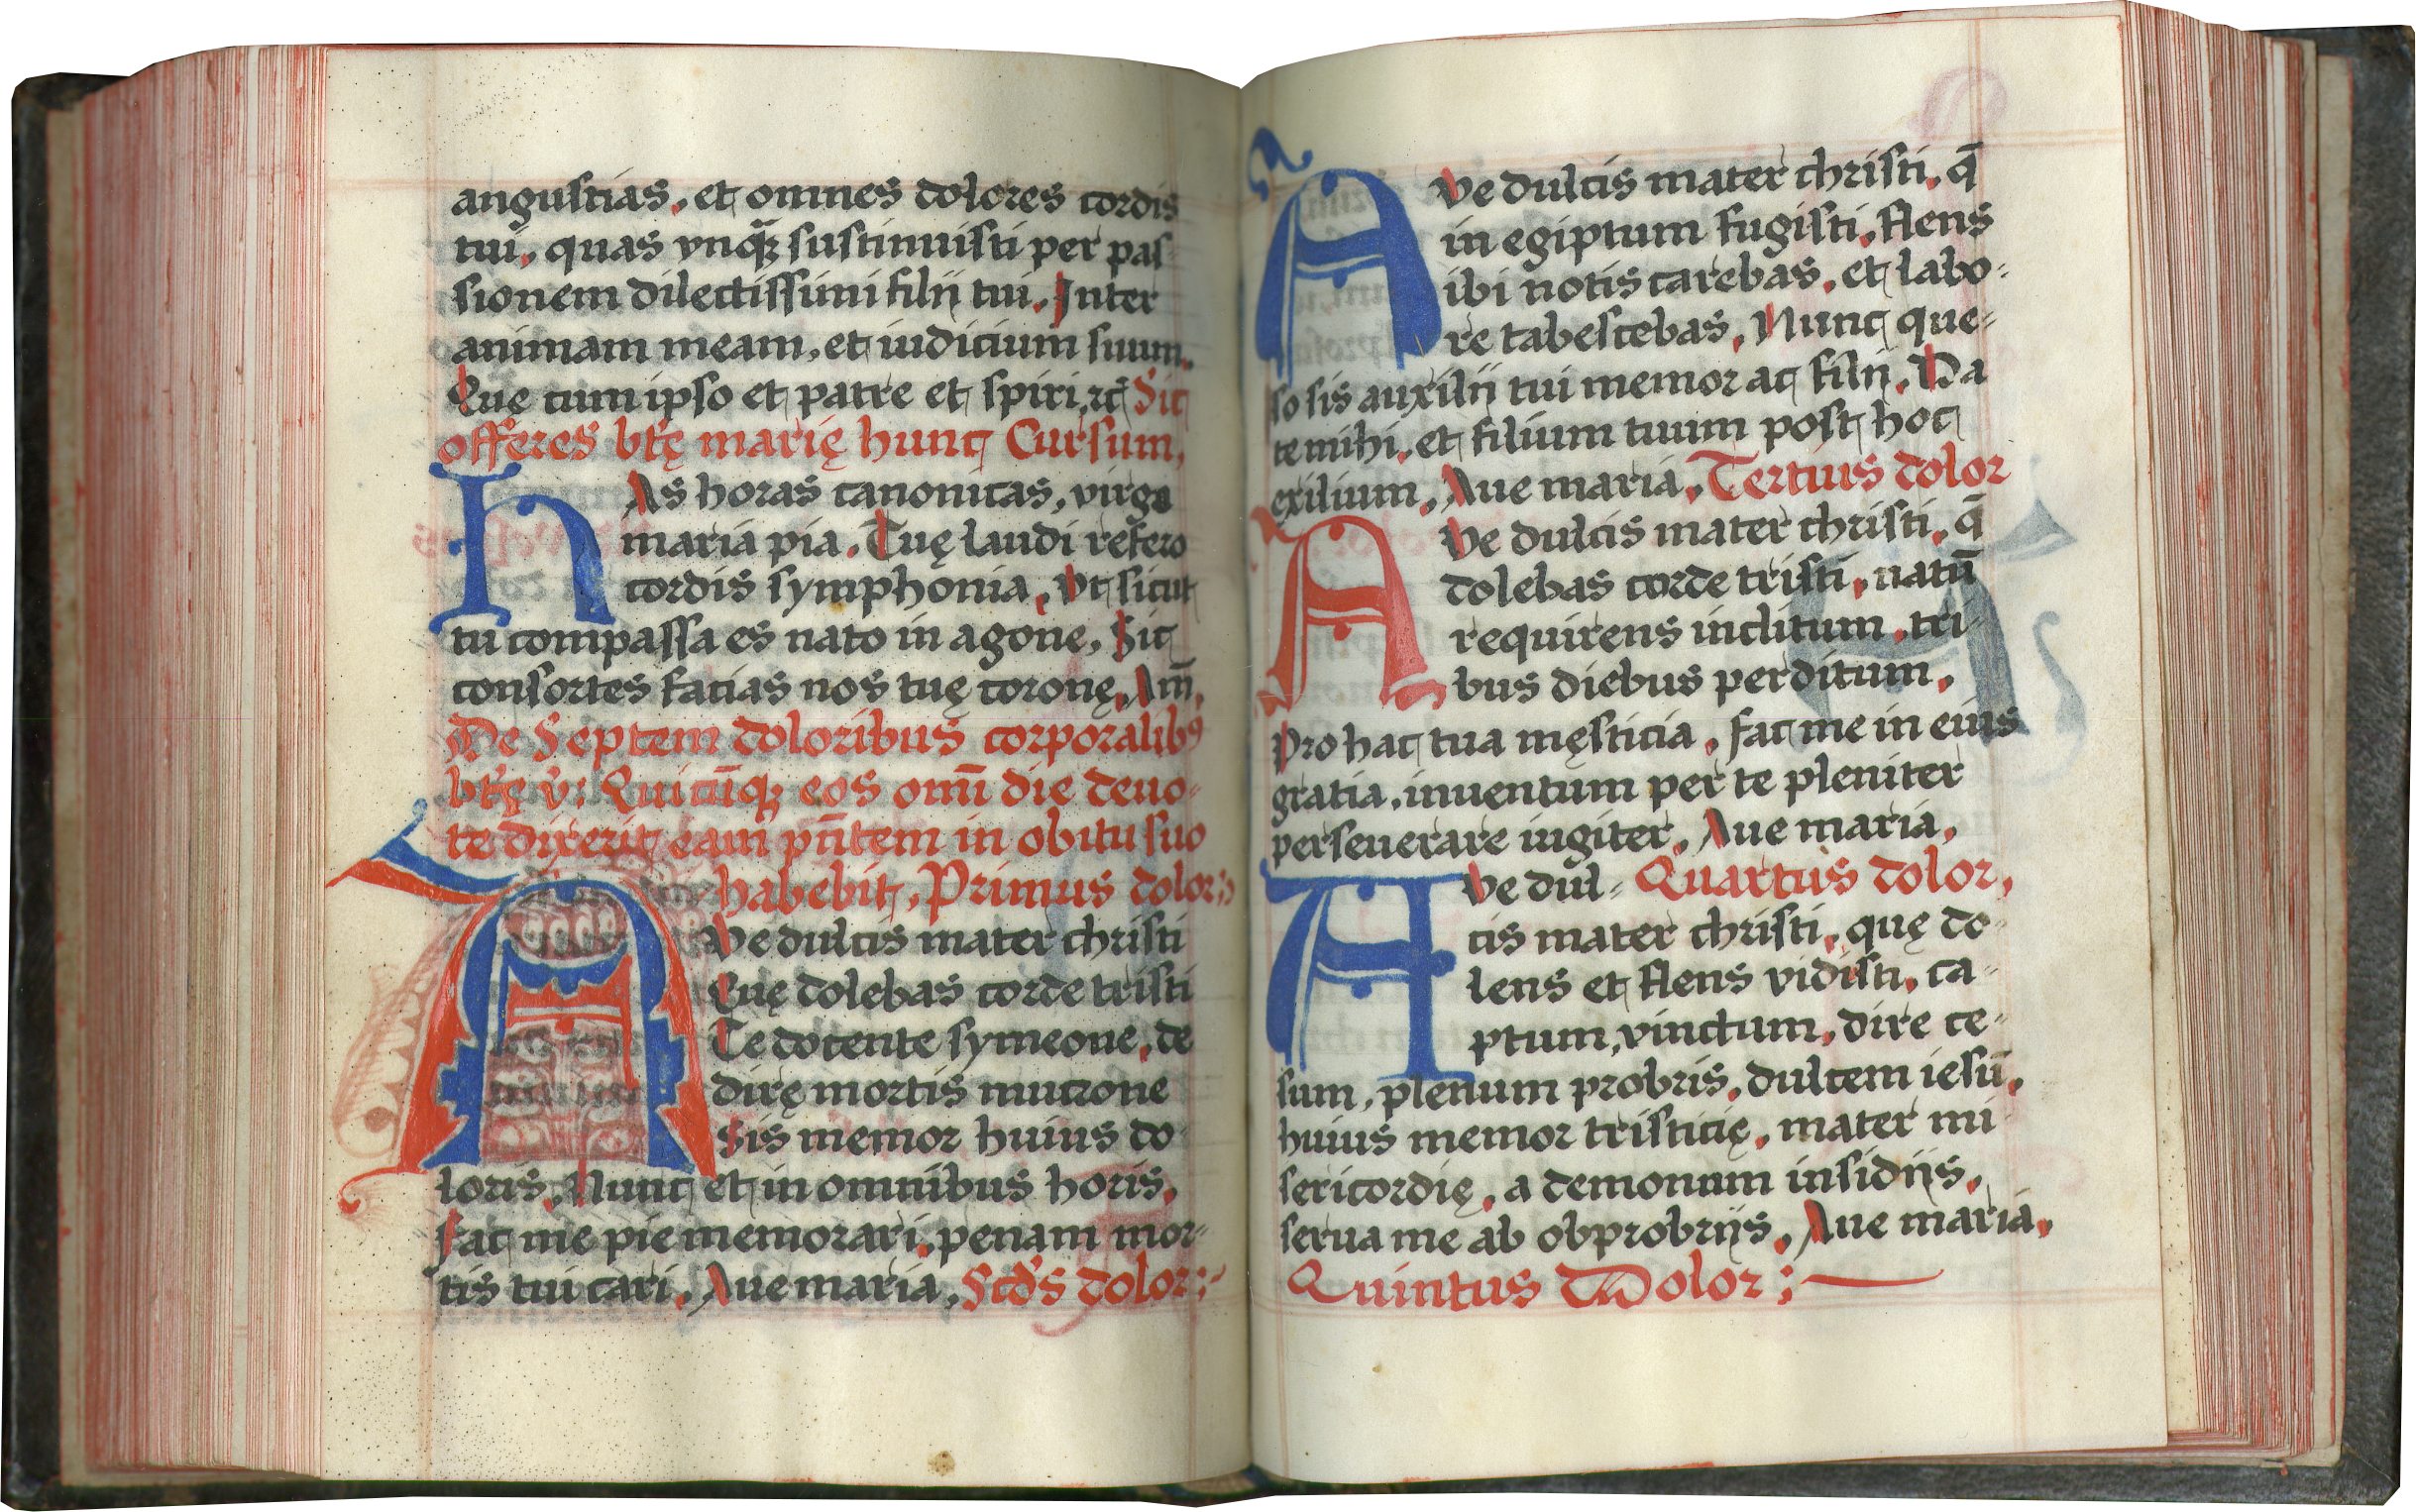 angustias, et omnes dolores cordis
tui, quas vnq̄ꝫ sustinuisti per pas
sionem dilectissimi filij tui. Inter
animam meam, et iudicium suum.
Quę cum ipso et patre et spiri, ꝛc̄ Sic
offeres btę marię hunc Cursum,
HAs horas canonicas, virgo
maria pia. Tuę laudi refero
cordis symphonia, Vt sicut
tu compassa es nato in agone, Sic
consortes facias nos tuę coronę, Am̄,
De Septem doloribus corporalibꝰ
btę v: Quicūqꝫ eos omī die deuo-
te dixerit, eam pn̄tem in obitu suo
habebit, Primus dolor:
AVe dulcis mater christi
Quę dolebas corde tristi
Te docente symeone, de
dirę mortis mucrone
Sis memor huius do
loris, Nunc et in omnibus horis,
Fac me pie memorari, penam mor-
tis tui cari, Aue maria, Scd's dolor:
AVe dulcis mater christi, q̄
in egiptum fugisti, flens
ibi notis carebas, et labo-
re tabescebas, Nunc que-
so sis auxilij tui memor ac filij, Da
te mihi, et filium tuum post hoc
exilium, Aue maria, Tertius dolor
AVe dulcis mater christi, q̄
dolebas corde tristi, natū
requirens inclitum, tri-
bus diebus perditum,
Pro hac tua męsticia, fac me in eius
gratia, inuentum per te pleniter
perseuerare iugiter, Aue maria,
AVe dul- Quartus dolor,
cis mater christi, quę do-
lens et flens vidisti, ca-
ptum, vinctum, dire ce-
sum, plenum probris, dulcem iesū,
huius memor tristicię, mater mi-
sericordię, a demonum insidijs,
serua me ab obprobrijs, Aue maria,
Quintus Dolor: